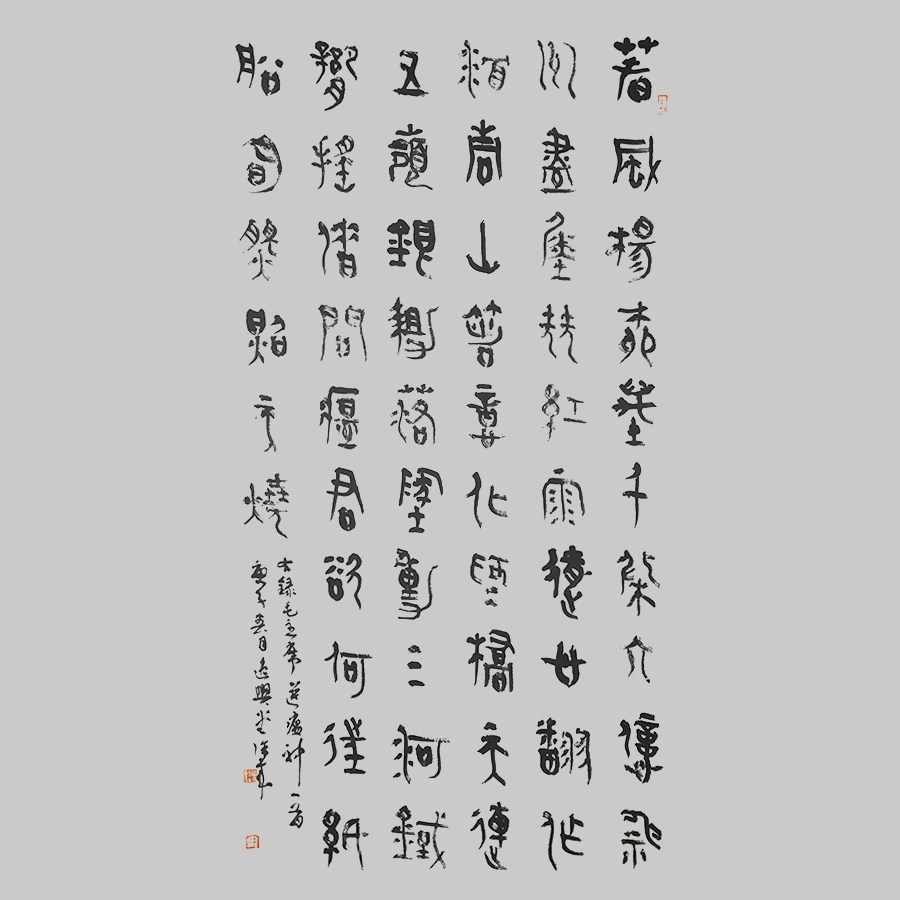 春風楊柳萬千條六億神
州盡舜堯紅雨隨心翻作
浪青山著意化為橋天連
五嶺銀鋤落地動三河鐵
臂搖借問瘟君欲何往紙
船明燭照天燒
右錄毛主席送瘟神一首
庚子春月逸興堂